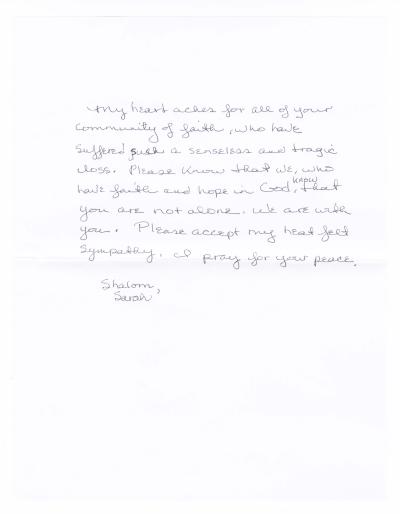 My heart aches for all of your
community of faith, who have
suffered such a senseless and tragic
loss. Please know that we, who
have faith and hope in God, know that
you are not alone. We are with
you. Please accept my heat felt
sympathy. I pray for your peace.
Shalom,
Sarah